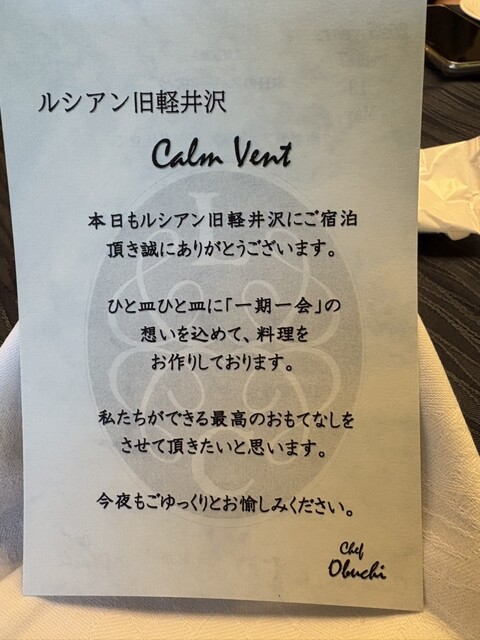 ルシアン旧軽井沢
Calm Vent
本日もルシアン旧軽井沢にご宿泊
頂き誠にありがとうございます。
ひと皿ひと皿に「一期一会」の
想いを込めて、料理を
お作りしております。
私たちができる最高のおもてなしを
させて頂きたいと思います。
今夜もごゆっくりとお愉しみください。
Chef
Obuchi